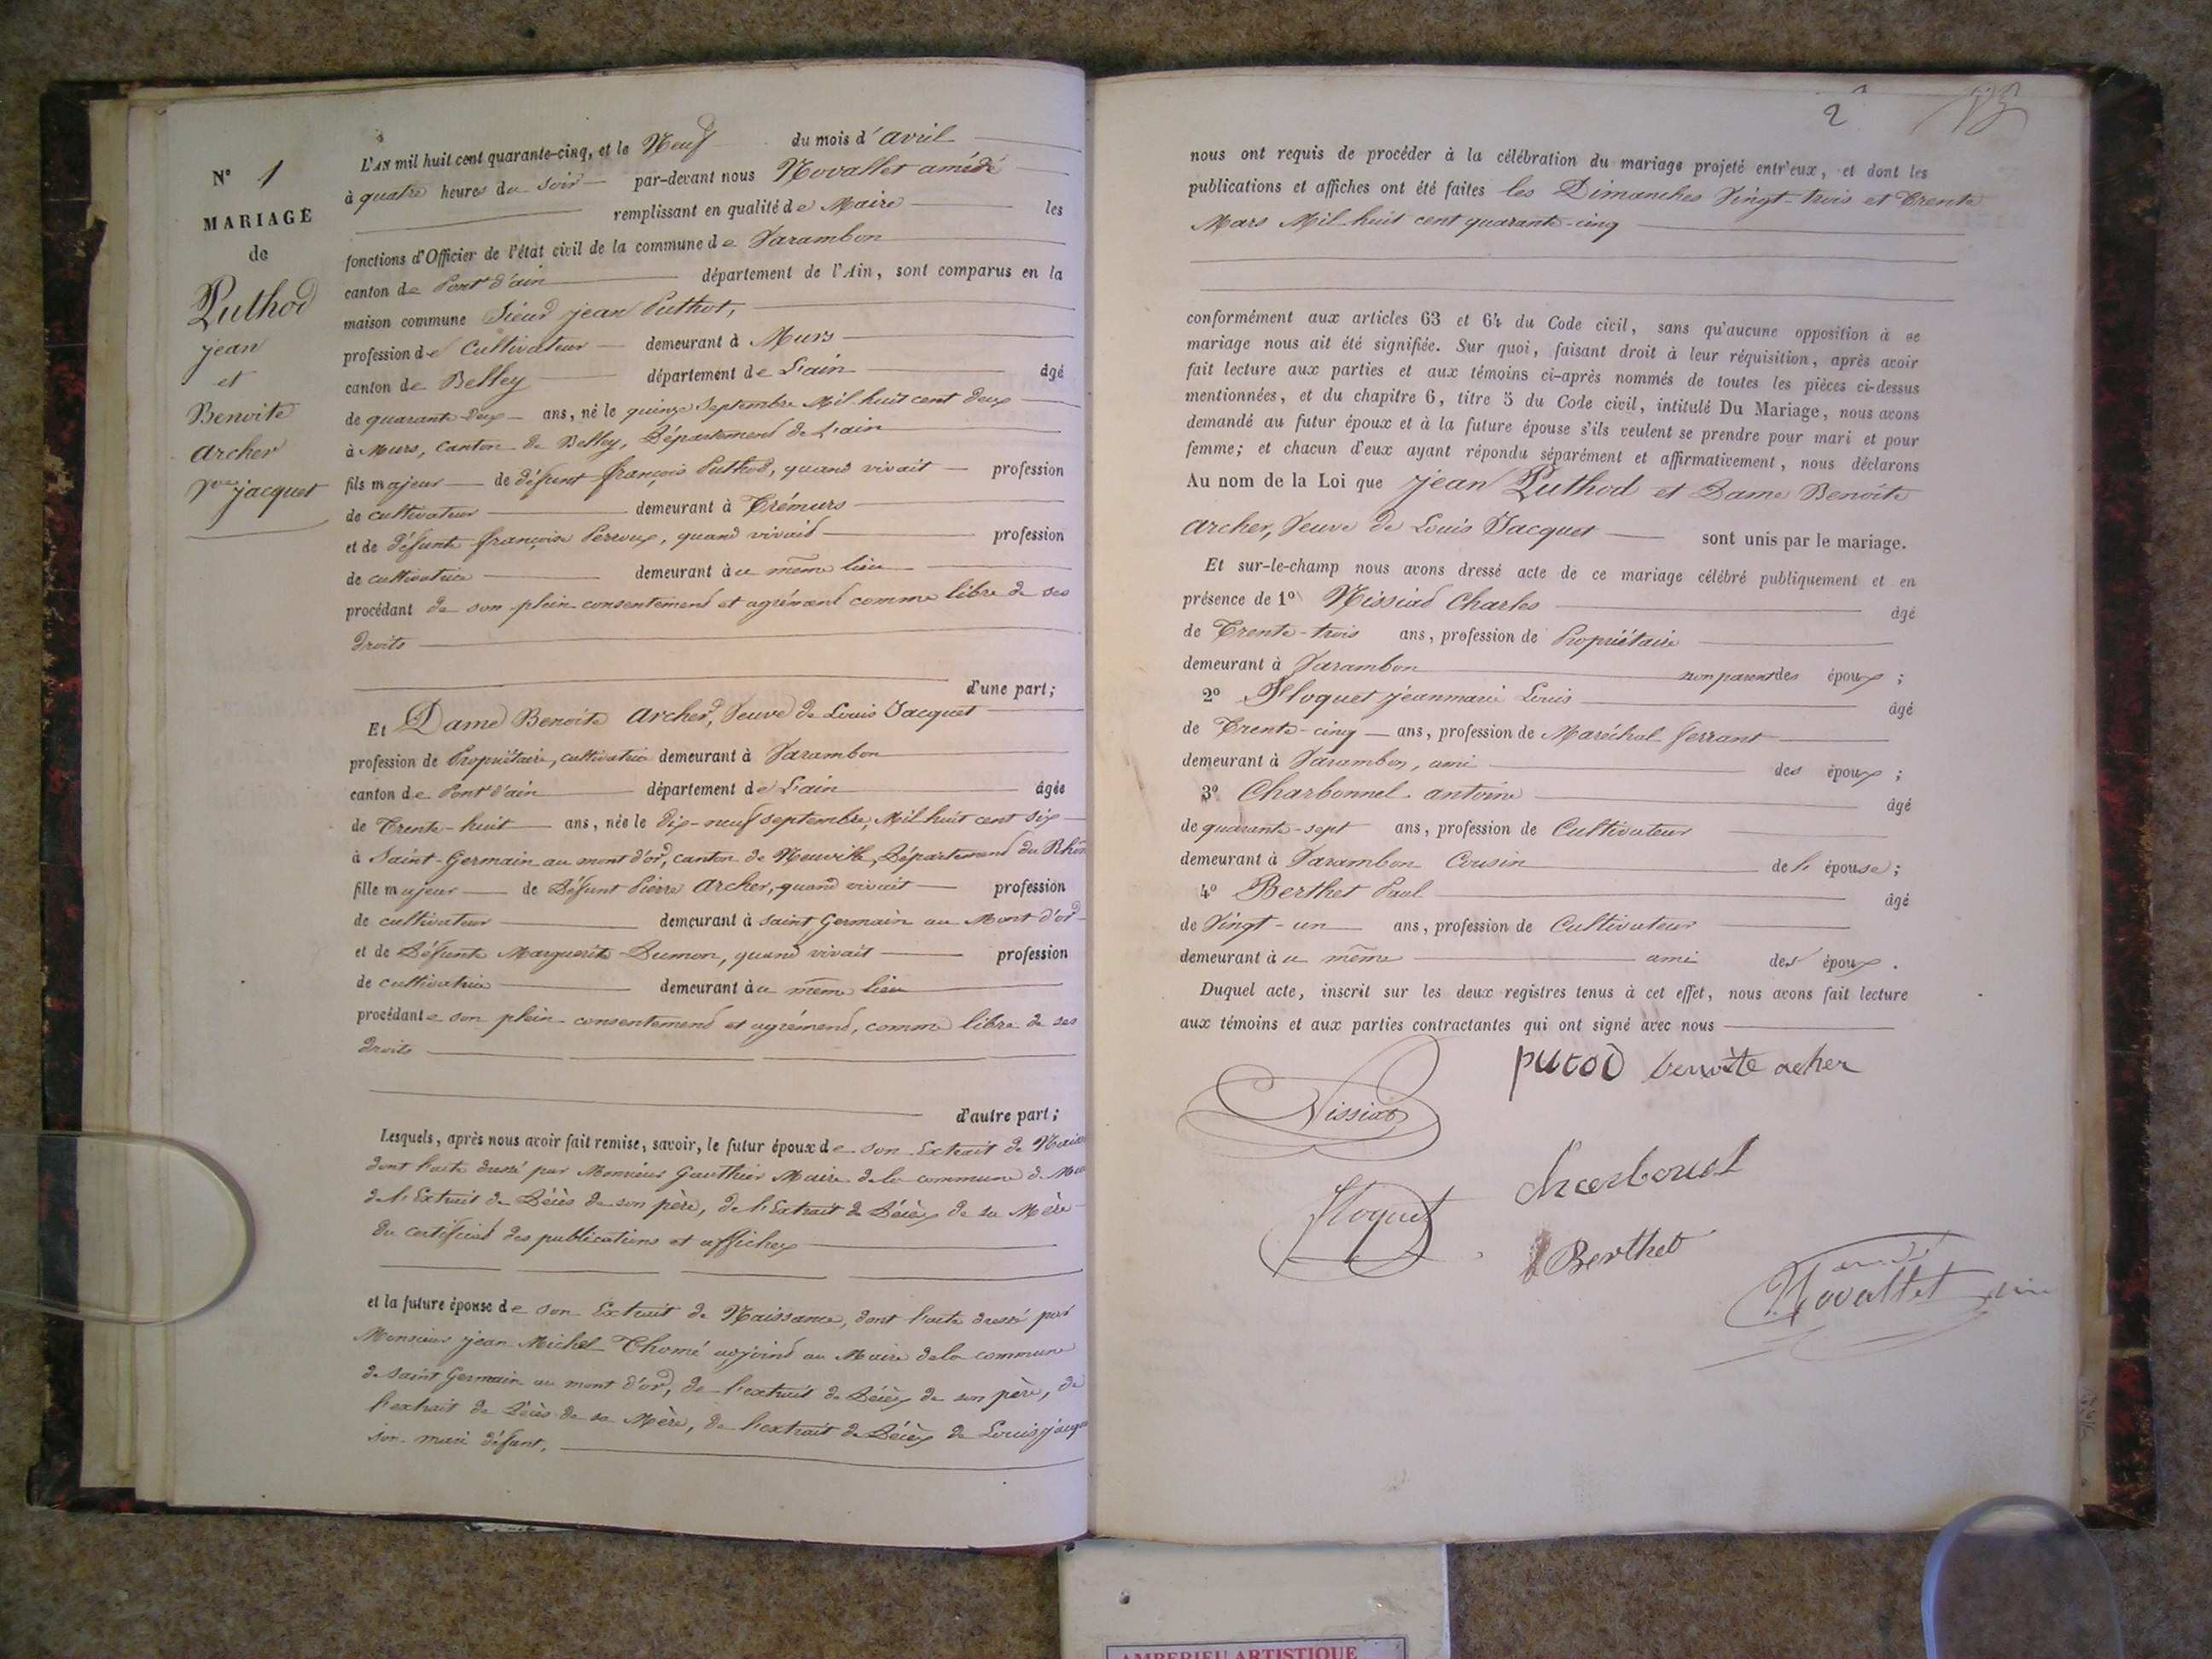 N° 1
MARIAGE
de
Puthod
jean
et
Benoite
archer
Vve jacquet
L'AN mil huit cent quarante-cinq, et le Neuf du mois d'avril
à quatre heures du soir par-devant nous Novallet amédé
remplissant en qualité de Maire les
fonctions d'Officier de l'état civil de la commune de Varambon
canton de Pont d'ain département de l'Ain, sont comparus en la
maison commune Sieur jean Puthot,
profession de Cultivateur demeurant à Murs
canton de Belley département de L'ain âgé
de quarante deux ans, né le quinze septembre Mil huit cent deux
à Murs, canton de Belley, Département de L'ain
fils majeur de défunt françois Puthod, quand vivait profession
de cultivateur demeurant à Trémurs
et de défunte françoise Perroux, quand vivait profession
de cultivatrice demeurant au même lieu
procédant de son plein consentement et agrément comme libre de ses
droits
d'une part;
Et Dame Benoite archer, Veuve de Louis Jacquet
profession de Propriétaire, cultivatrice demeurant à Varambon
canton de Pont d'ain département de L'ain âgée
de Trente-huit ans, née le dix-neuf septembre, Mil huit cent six
à Saint-Germain au mont d'or, canton de Neuville, Département du Rhône
fille majeur de Défunt Pierre archer, quand vivait profession
de cultivateur demeurant à saint Germain au Mont d'or
et de Défunte Marguerite Dumon, quand vivait profession
de cultivatrice demeurant au même lieu
procédante son plein consentement et agrément, comme libre de ses
droits
d'autre part;
Lesquels, après nous avoir fait remise, savoir, le futur époux de son Extrait de
dont l'acte dressé par Monsieur Gauthier Maire de la commune de
de l'Extrait de Décès de son père, de l'Extrait de Décès de sa Mère
du certificat des publications et affiches
et la future épouse de son Extrait de Naissance, dont l'acte dressé par
Monsieur jean Michel Thomé adjoint au Maire de la commune
de saint Germain au mont d'or, de l'extrait de Décès de son père, de
l'extrait de Décès de sa Mère, de l'extrait de Décès de Louis
son mari défunt.
2
nous ont requis de procéder à la célébration du mariage projeté entr'eux, et dont les
publications et affiches ont été faites les Dimanches Vingt-trois et Trente
Mars Mil huit cent quarante-cinq
conformément aux articles 63 et 64 du Code civil, sans qu'aucune opposition à ce
mariage nous ait été signifiée. Sur quoi, faisant droit à leur réquisition, après avoir
fait lecture aux parties et aux témoins ci-après nommés de toutes les pièces ci-dessus
mentionnées, et du chapitre 6, titre 5 du Code civil, intitulé Du Mariage, nous avons
demandé au futur époux et à la future épouse s'ils veulent se prendre pour mari et pour
femme; et chacun d'eux ayant répondu séparément et affirmativement, nous déclarons
Au nom de la Loi que jean Puthod et Dame Benoite
archer, Veuve de Louis Jacquet sont unis par le mariage.
Et sur-le-champ nous avons dressé acte de ce mariage célébré publiquement et en
présence de 1° Nissiat Charles âgé
de Trente-trois ans, profession de Propriétaire
demeurant à Varambon non parent des époux;
2° Floquet jeanmarie Louis âgé
de Trente-cinq ans, profession de Maréchal ferrant
demeurant à Varambon, ami des époux;
3° Charbonnel antoine âgé
de quarante-sept ans, profession de Cultivateur
demeurant à Varambon Cousin de l' épouse;
4° Berthet Paul âgé
de Vingt-un ans, profession de Cultivateur
demeurant au même ami des époux.
Duquel acte, inscrit sur les deux registres tenus à cet effet, nous avons fait lecture
aux témoins et aux parties contractantes qui ont signé avec nous
putod benoite acher
Nissiat
Charbonel
Floquet
Berthet
Novallet
AMBERIEU ARTISTIQUE